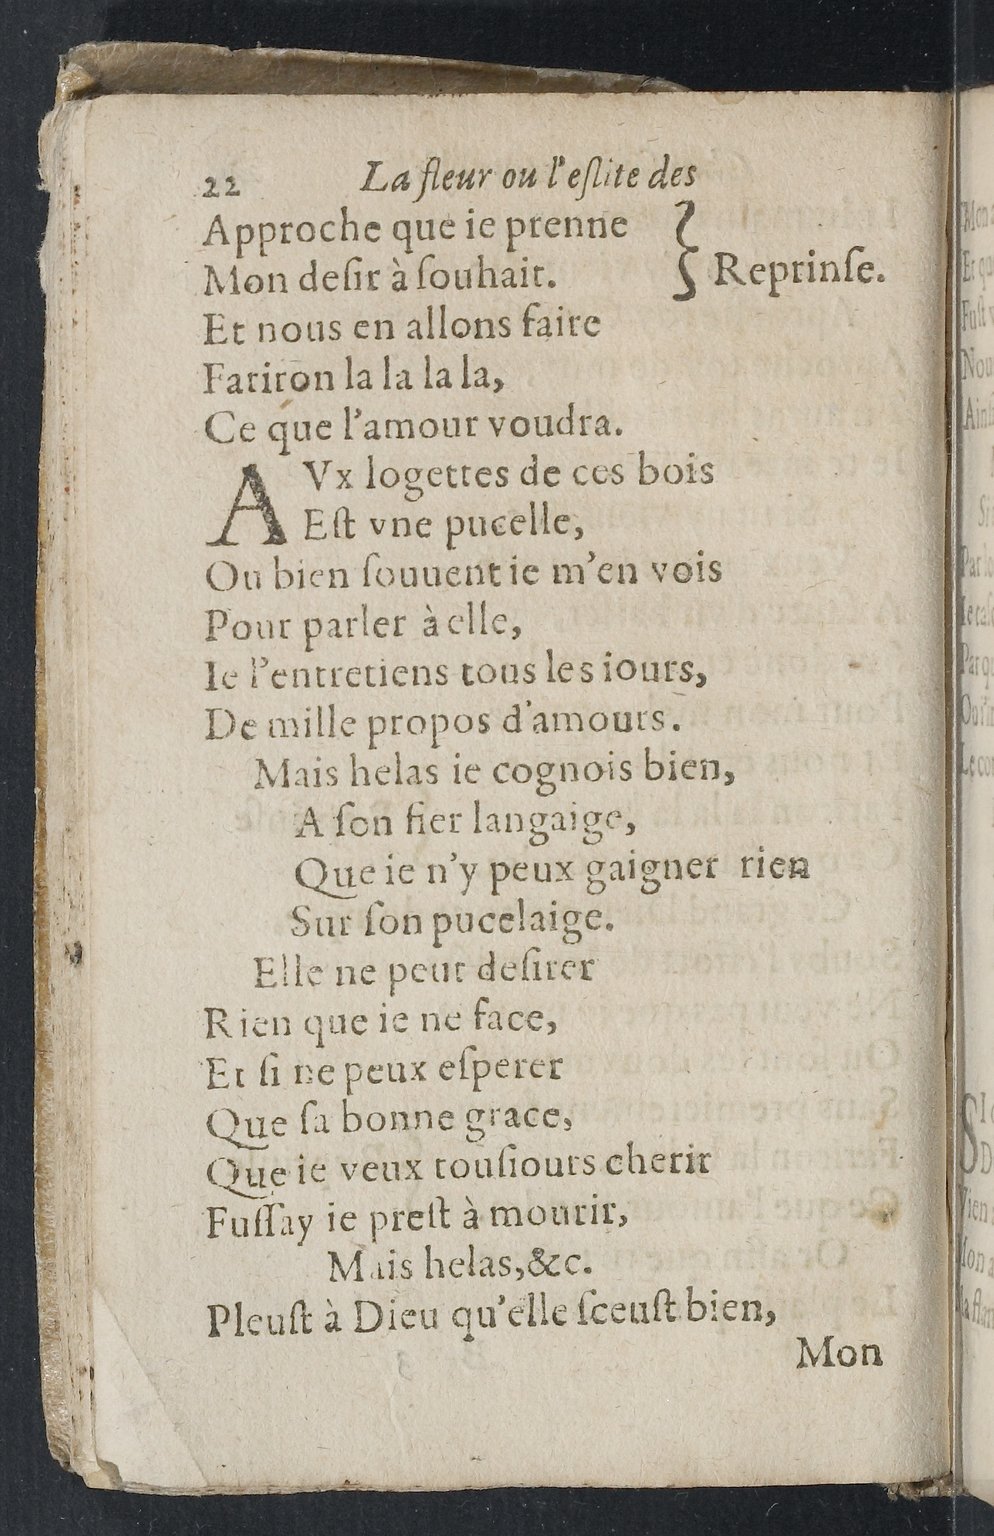 22 La fleur ou l'eſlite des
Approche que ie prenne
Mon deſir à ſouhait. } Reprinſe.
Et nous en allons faire
Fariron la la la la,
Ce que l'amour voudra.
AVx logettes de ces bois
Eſt vne pucelle,
Ou bien ſouuent ie m'en vois
Pour parler à elle,
Ie l'entretiens tous les iours,
De mille propos d'amours.
Mais helas ie cognois bien,
A ſon fier langaige,
Que ie n'y peux gaigner rien
Sur ſon pucelaige.
Elle ne peut deſirer
Rien que ie ne face,
Et ſi ne peux eſperer
Que ſa bonne grace,
Que ie veux touſiours cherir
Fuſſay ie preſt à mourir,
Mais helas,&c.
Pleuſt à Dieu qu'elle ſceuſt bien,
Mon